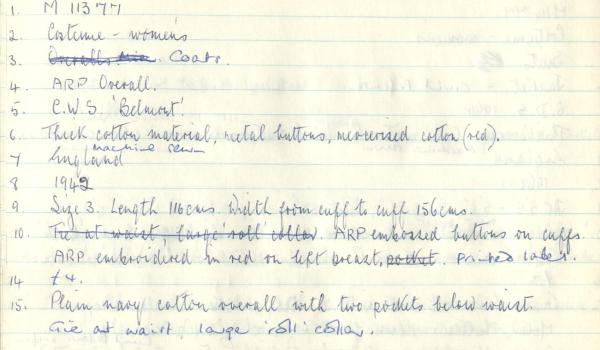 1. M 11377
2. Costume - womens
3. Overalls Coats.
4. ARP Overall.
5. C.W.S. 'Belmont'.
6. Thick cotton material, metal buttons, mercerised cotton (red).
machine sewn
7 England
8 1942
9. Size 3. Length 116cms. Width from cuff to cuff 156cms.
10. Tie at waist, large 'roll' collar. ARP embossed buttons on cuffs.
ARP embroidered in red on left breast, pocket. Printed label.
14 £4.
15. Plain navy cotton overall with two pockets below waist.
Tie at waist, large 'roll' collar.